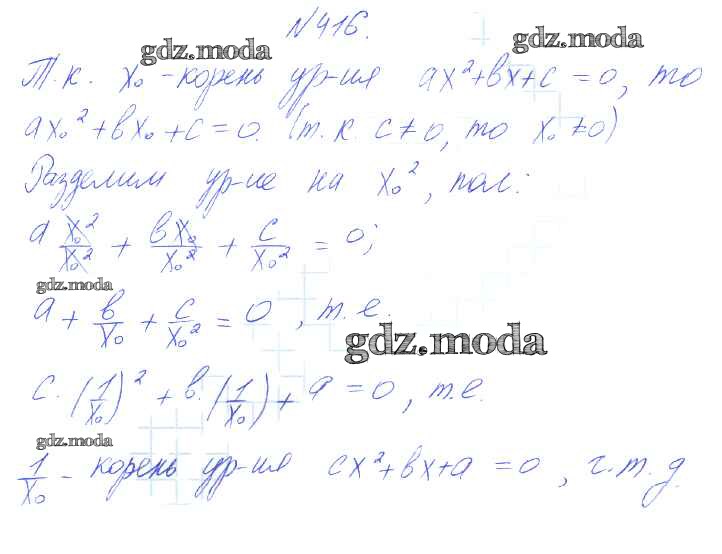 №416.
gdz.moda gdz.moda
Т.к. x₀ - корень ур-ия ax²+вx+c = 0, то
ax₀²+вx₀+c=0. (т.к. c≠0, то x₀≠0)
Разделим ур-ие на x₀², пол:
a x₀²/x₀² + вx₀/x₀² + c/x₀² = 0;
gdz.moda
a + в/x₀ + c/x₀² = 0, т.е.
gdz.moda
c·(1/x₀)² + в·(1/x₀) + a = 0, т.е.
gdz.moda
1/x₀ - корень ур-ия cx²+вx+a = 0, ч.т.д.